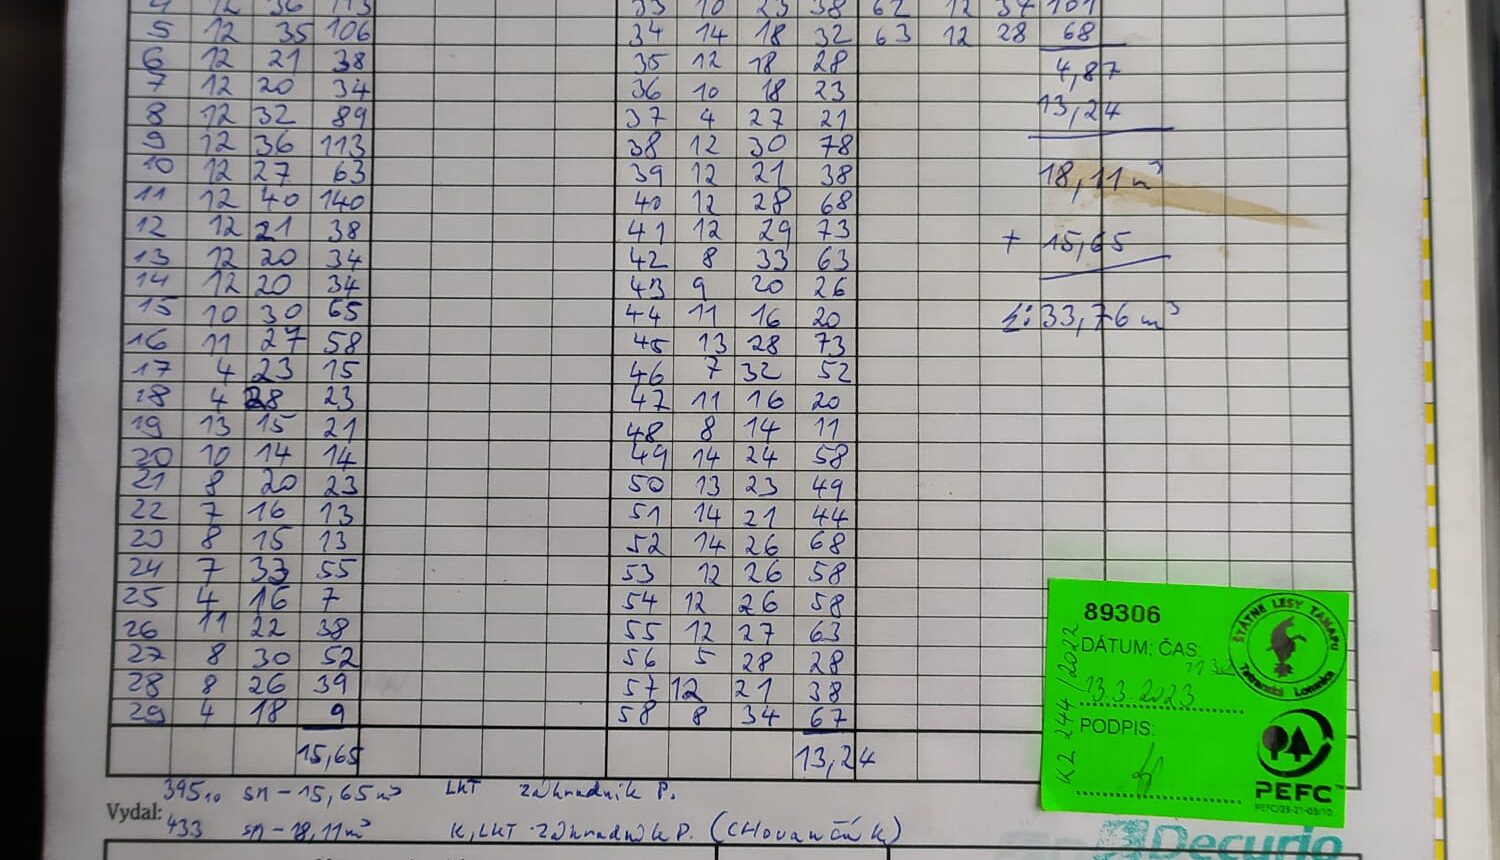 4 12 36 113 33 10 23 38 62 12 37 101
5 12 35 106 34 14 18 32 63 12 28 68
6 12 21 38 35 12 18 28 4,87
7 12 20 34 36 10 18 23
8 12 32 89 37 4 27 21 13,24
9 12 36 113 38 12 30 78
10 12 27 63 39 12 21 38 18,11 m³
11 12 40 140 40 12 28 68
12 12 21 38 41 12 29 73 + 15,65
13 12 20 34 42 8 33 63
14 12 20 34 43 9 20 26
15 10 30 65 44 11 16 20 Σ: 33,76 m³
16 11 27 58 45 13 28 73
17 4 23 15 46 7 32 52
18 4 28 23 47 11 16 20
19 13 15 21 48 8 14 11
20 10 14 14 49 14 24 58
21 8 20 23 50 13 23 49
22 7 16 13 51 14 21 44
23 8 15 13 52 14 26 68
24 7 33 55 53 12 26 58
25 4 16 7 54 12 26 58
26 11 22 38 55 12 27 63
27 8 30 52 56 5 28 28
28 8 26 39 57 12 21 38
29 4 18 9 58 8 34 67
15,65 13,24
395 10 sm - 15,65 m³ LKT záhradník P.
Vydal:
433 sm - 18,11 m³ K, LKT - záhradník P. (CHovančák)
89306
DÁTUM; ČAS:
11 30
13.3.2023
PODPIS:
K2 244/2022
ŠTÁTNE LESY TANAPU
Tatranská Lomnica
PEFC
PEFC/23-21-03/10
Decurio